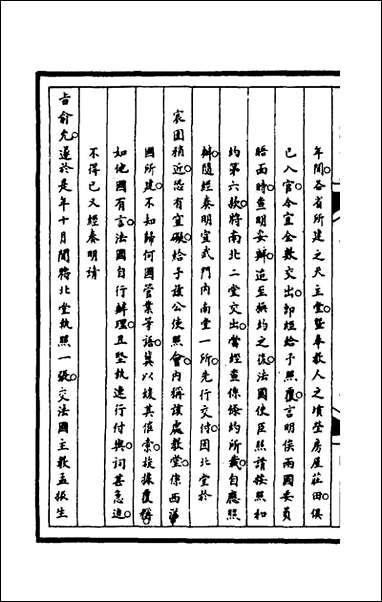 年間各省所建之天主堂暨奉教人之墳塋房屋莊田俱
已入官今宜全數交出卽經給予照覆言明俟兩國委員
晤面時查明妥辦迨至換約之後法國使臣照請按照和
約第六款將南北二堂交出當經查係條約所載自應照
辦隨經奏明宣武門內南堂一所先行交付因北堂於
宸園稍近恐有窒礙給予該公使照會內稱該處教堂係西洋
國所建不知歸何國管業等語冀以緩其催索旋據覆稱
如他國有言法國自行辦理且堅執速行付與詞甚急迫
不得已又經奏明請
旨俞允遂於是年十月間將北堂執照一張交法國主教孟振生